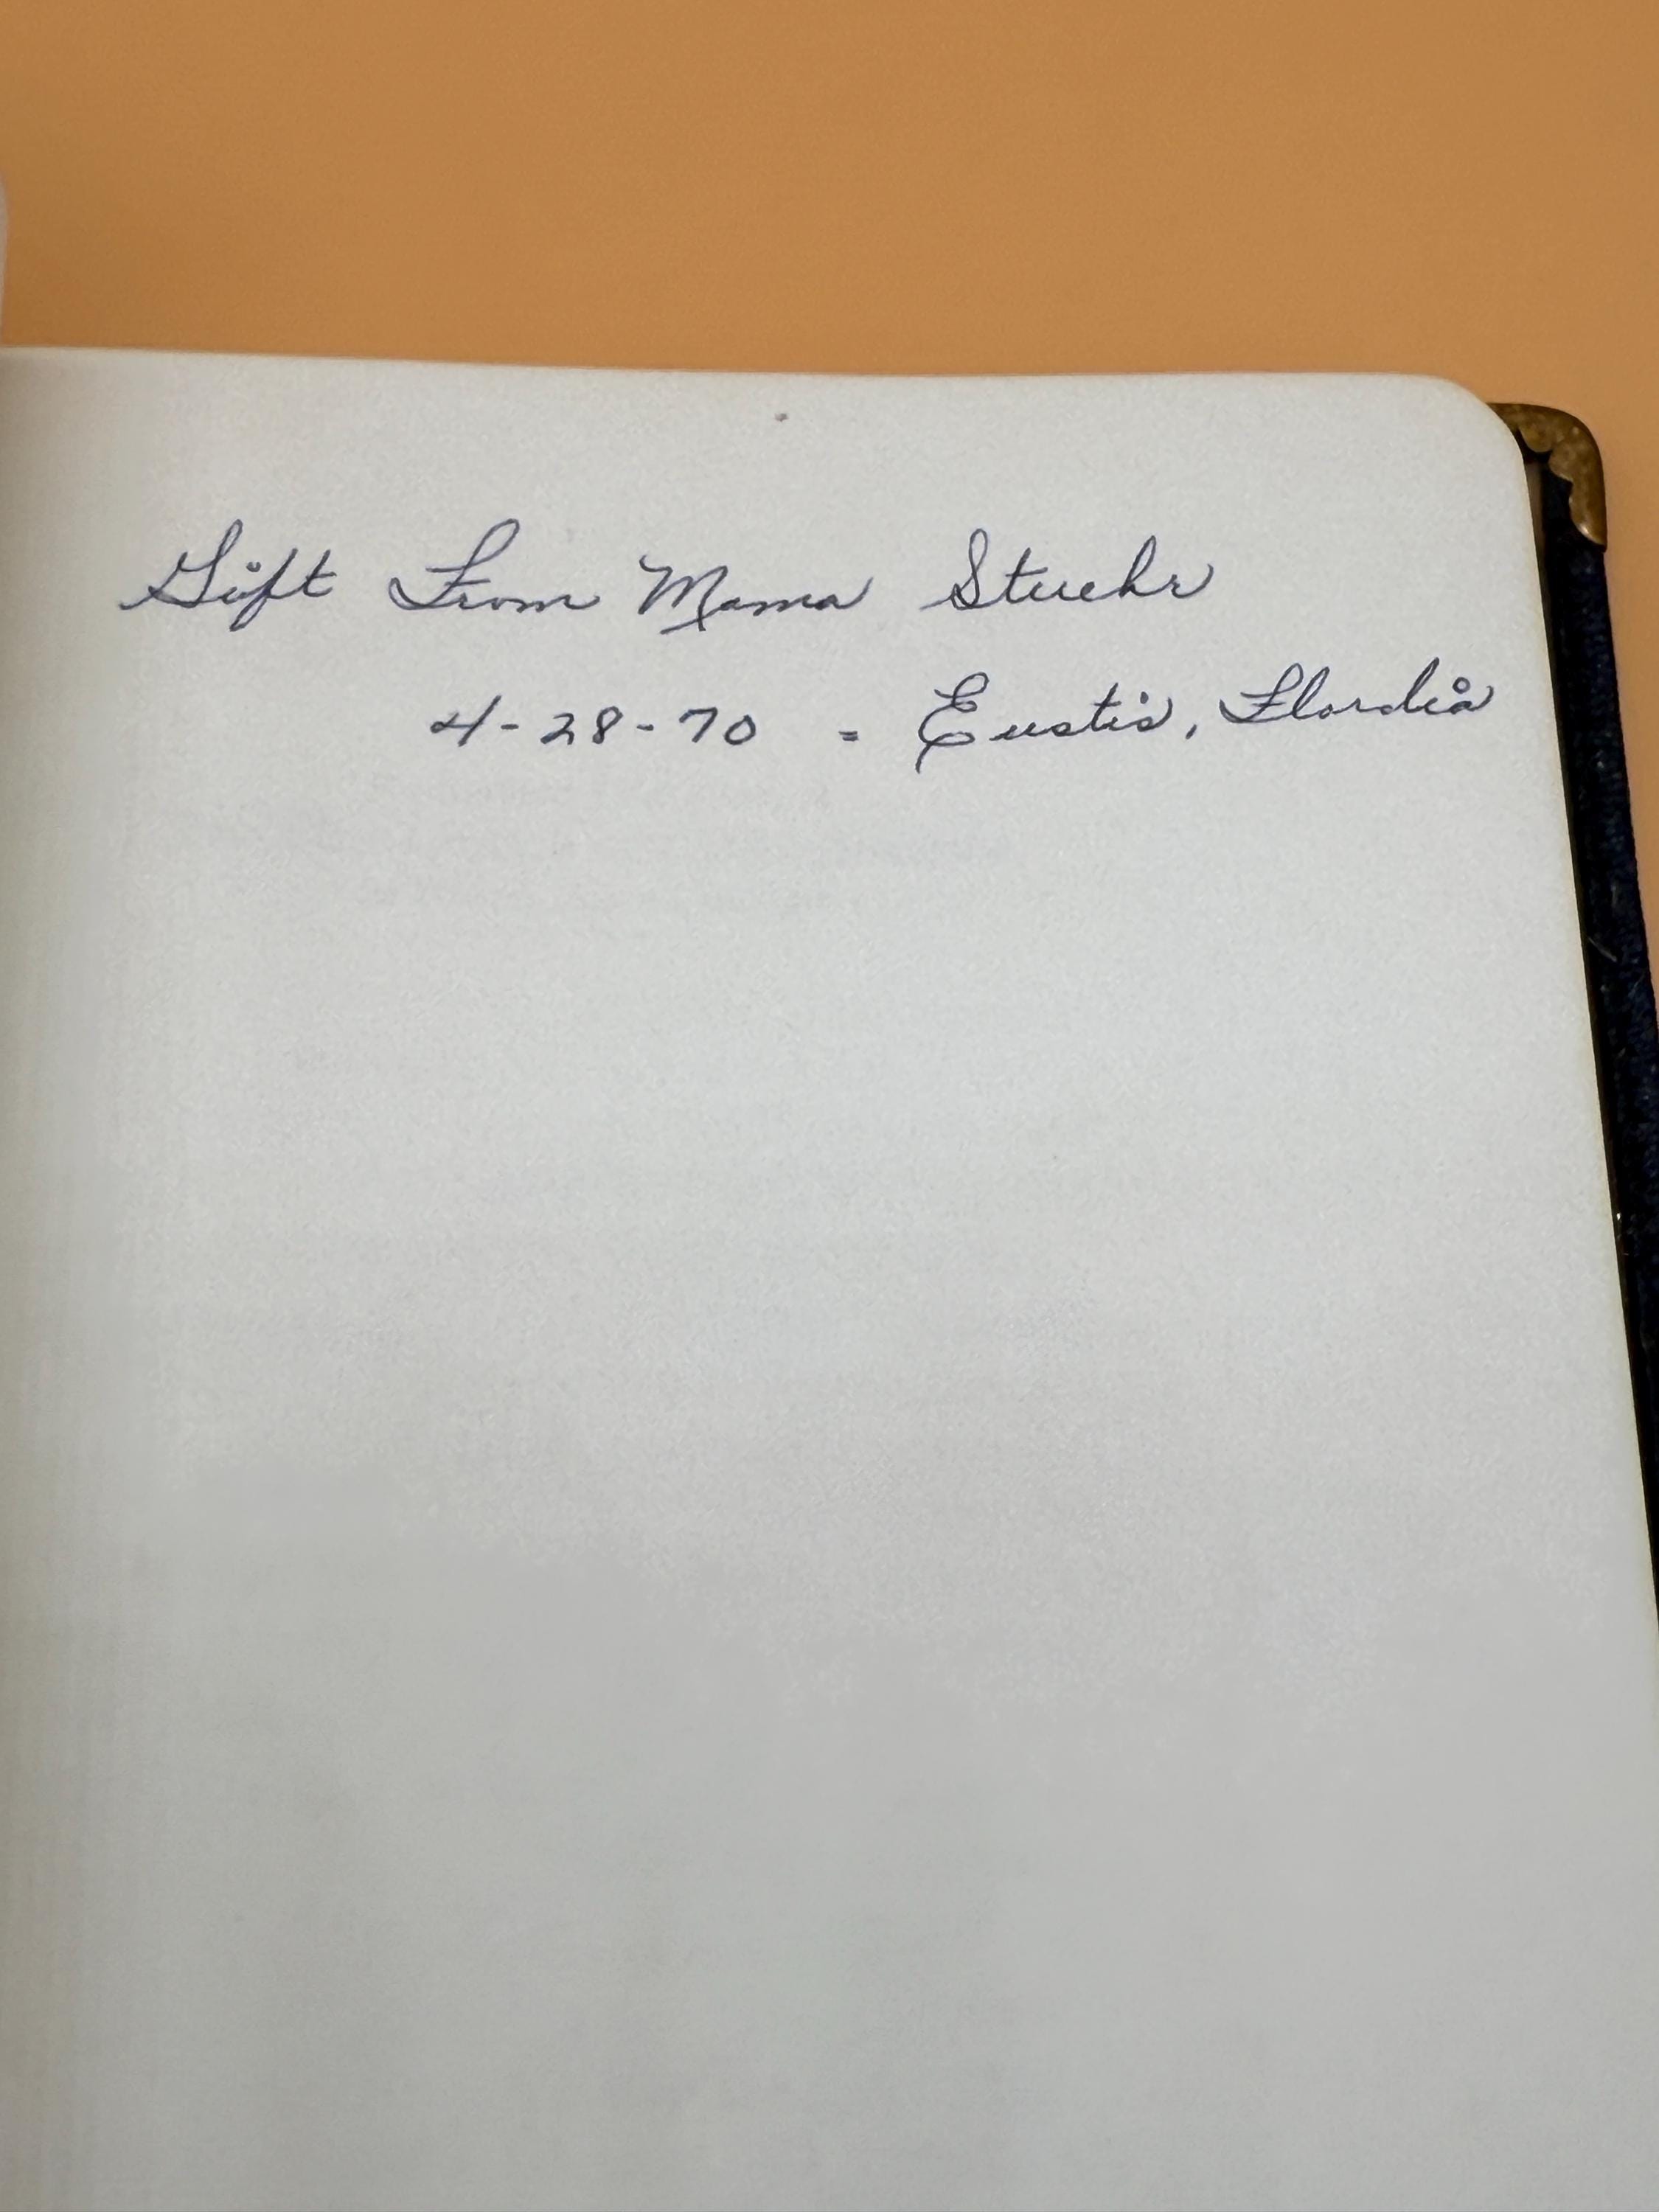 Gift From Mama Stuehr
4-28-70 - Eustis, Flordia